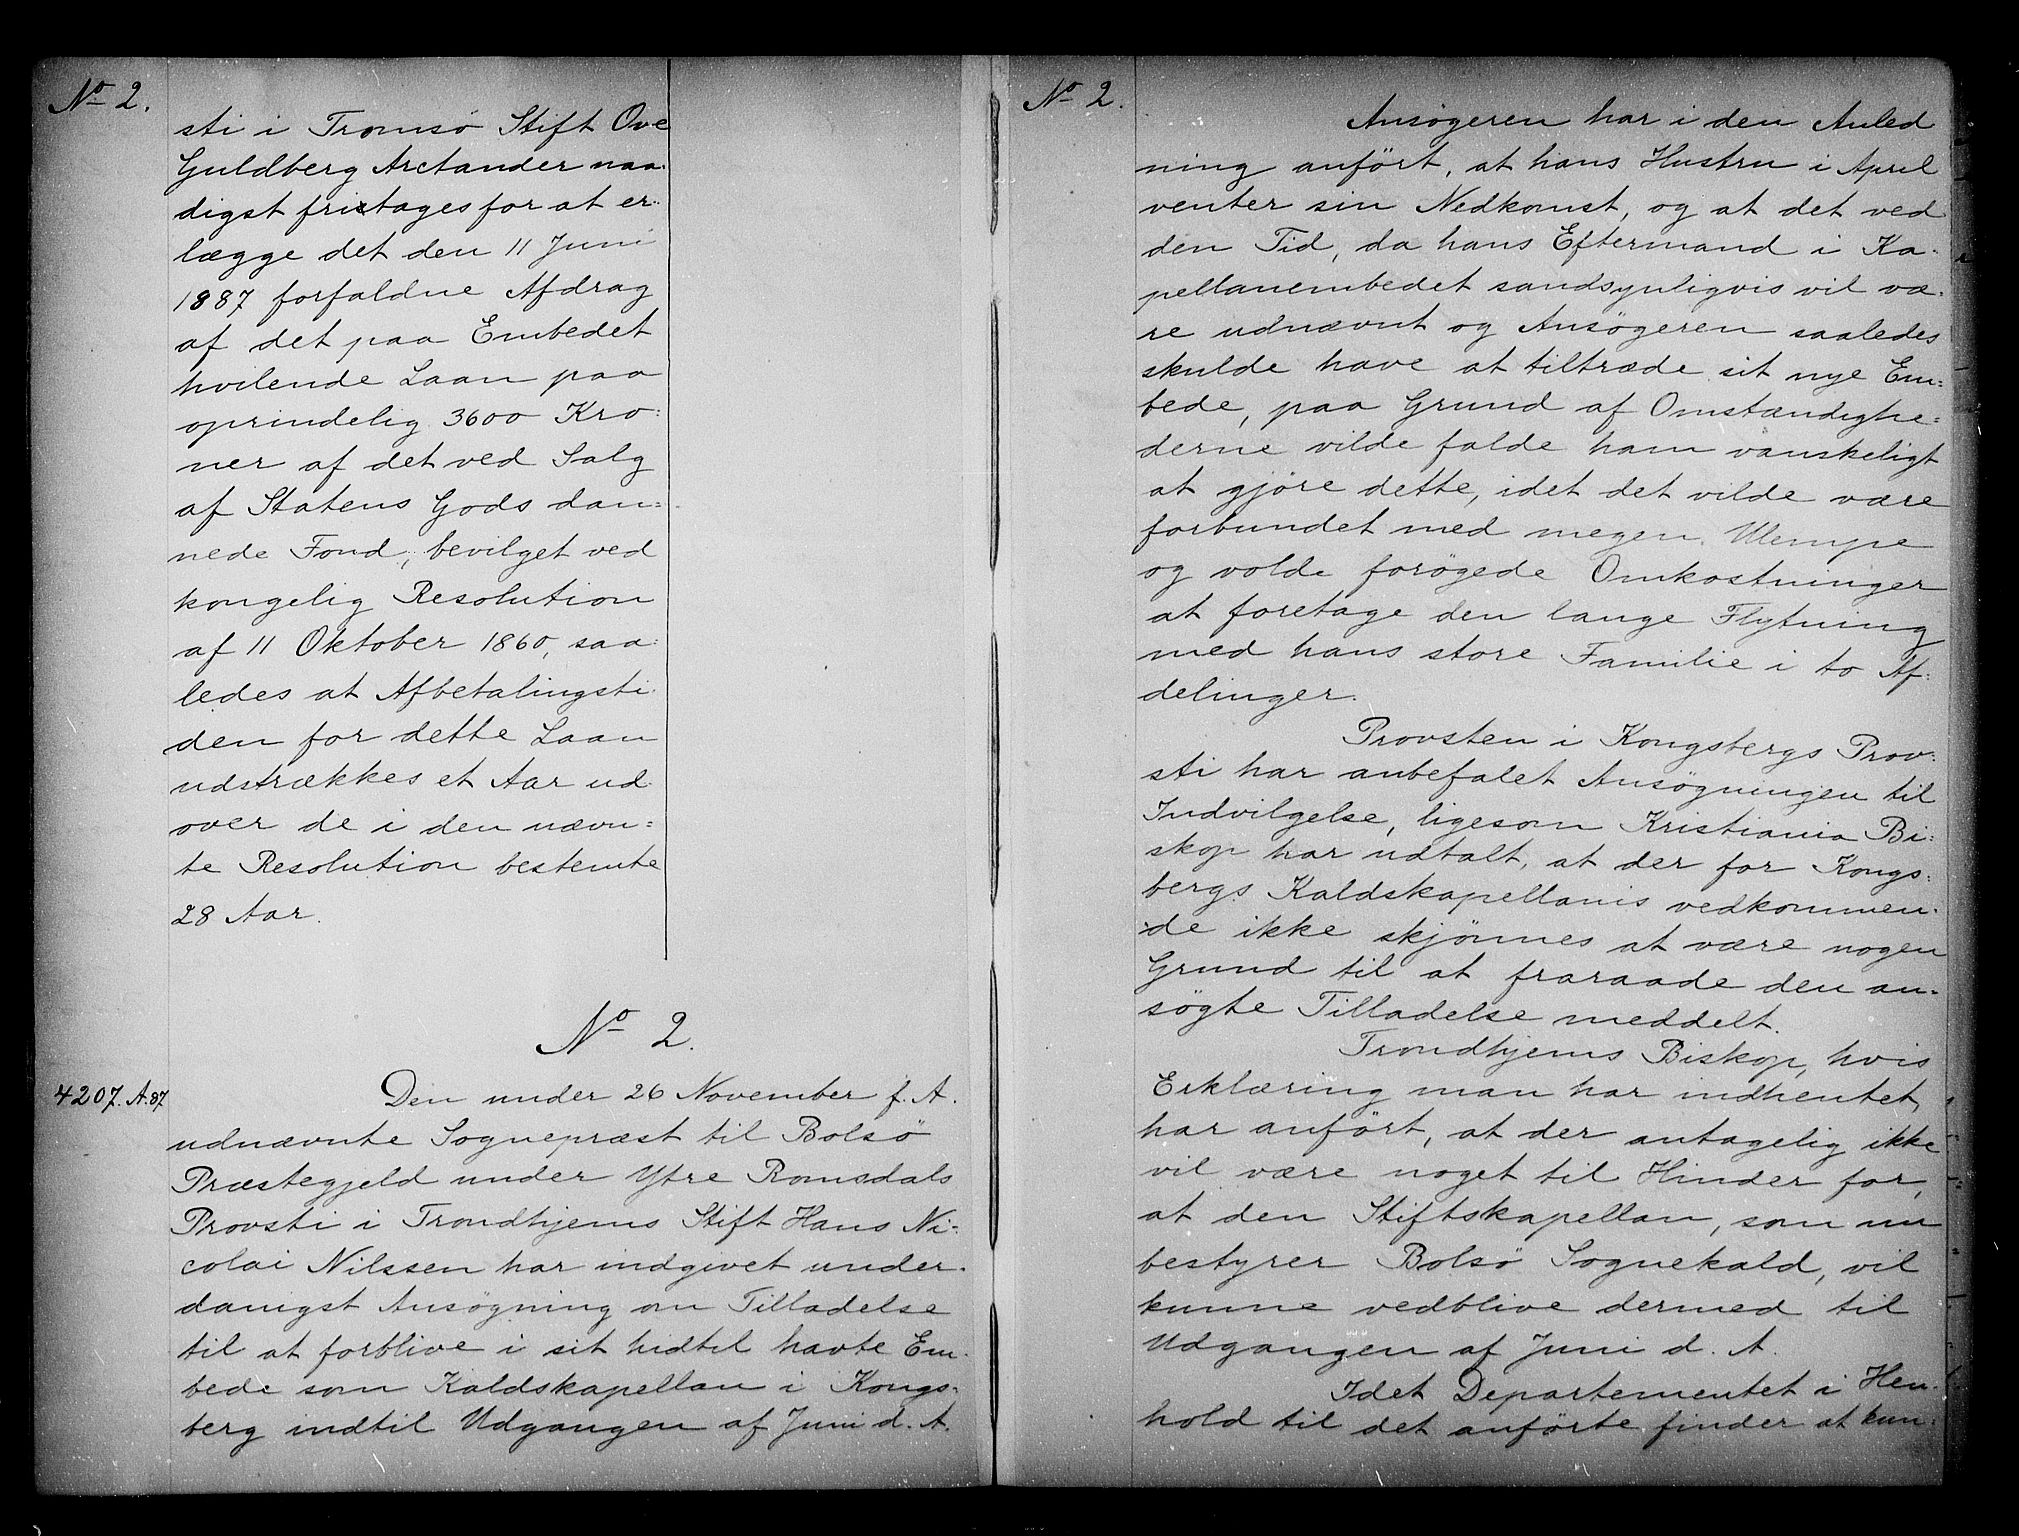 No 2.
sti i Tromsö Stift Ove
Guldberg Arctander naa-
digst fritages for at er-
lægge det den 11 Juni
1887 forfaldne Afdrag
af det paa Embedet
hvilende Laan paa
oprindelig 3600 Kro-
ner af det ved Salg
af Statens Gods dan-
nede Fond, bevilget ved
kongelig Resolution
af 11 Oktober 1860, saa-
ledes at Afbetalingsti-
den for dette Laan
udstrækkes et Aar ud
over de i den nævn-
te Resolution bestemte
28 Aar.
No 2.
4207. A. 87
Den under 26 November f. A.
udnævnte Sognepræst til Bolsö
Præstegjeld under Ytre Romsdals
Provsti i Trondhjems Stift Hans Ni-
colai Nilssen har indgivet under-
danigst Ansøgning om Tilladelse
til at forblive i sit hidtil havte Em-
bede som Kaldskapellan i Kongs-
berg indtil Udgangen af Juni d. A.
No 2.
Ansøgeren har i den Anled
ning anført, at hans Hustru i April
venter sin Nedkomst, og at det ved
den Tid, da hans Eftermand i Ka-
pellanembedet sandsynligvis vil væ-
re udnævnt og Ansøgeren saaledes
skulde have at tiltræde sit nye Em-
bede, paa Grund af Omstændighe-
derne vilde falde ham vanskeligt
at gjöre dette, idet det vilde være
forbundet med megen Ulempe
og volde forøgede Omkostninger
at foretage den lange Flytning
med hans store Familie i to Af-
delinger.
Provsten i Kongsbergs Prov-
sti har anbefalet Ansøgningen til
Indvilgelse, ligesom Kristiania Bi-
skop har udtalt, at der for Kongs-
bergs Kaldskapellanis vedkommen-
de ikke skjönnes at være nogen
Grund til at fraraade den an-
søgte Tilladelse meddelt.
Trondhjems Biskop, hvis
Erklæring man har indhentet,
har anført, at der antagelig ikke
vil være noget til Hinder for,
at den Stiftskapellan, som nu
bestyrer Bolsö Sognekald, vil
kunne vedblive dermed til
Udgangen af Juni d. A.
Idet Departementet i Hen-
hold til det anførte finder at kun-